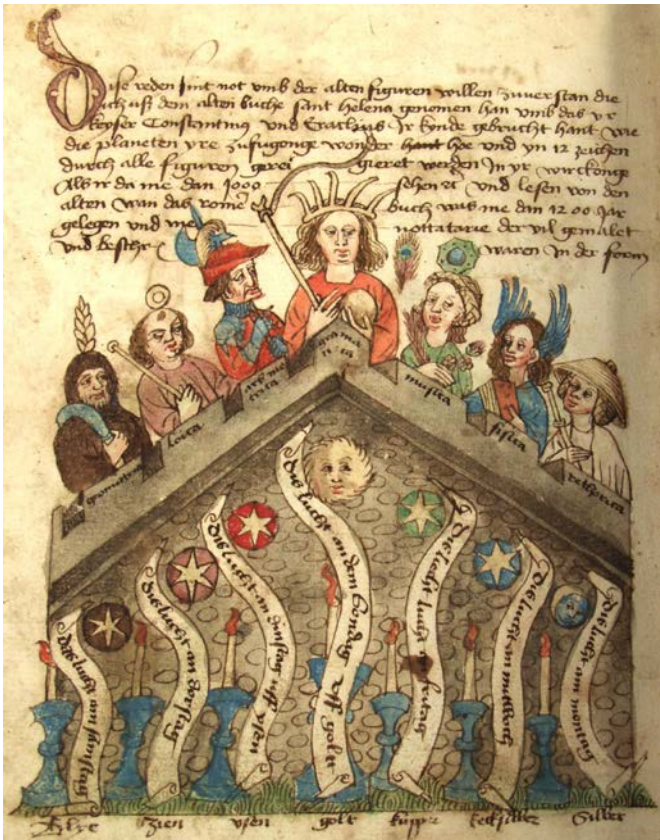 Dise reden sint not vmb der alten figuren willen zuuerstan die
ich uß dem alten buche sant Helena genomen han vmb das yr
keyser Constantinus und Eraclius Ir kynde gebrucht hant wie
die planeten yre zufugonge wonder hant und yn 12 zeichen
durch alle figuren gerei gieret werden In yr wirckonge
Als ir da me dan 1000 sehen und lesen von den
alten wan das rome buch was me dan 1200 Jar
gelegen und me nottatarie der vil gemalet
und beschr waren In der form
loica
arisme
trica
grama
tica
musica
fisica
rethorica
das lucht am samstag
die lucht an dorstag
die lucht an dinstag uff ysen
die lucht an dem sondag uff golt
die lucht fritag
die lucht an mittwoch
die lucht am montag
Blye zien ysen golt kupper kecksilber Silber